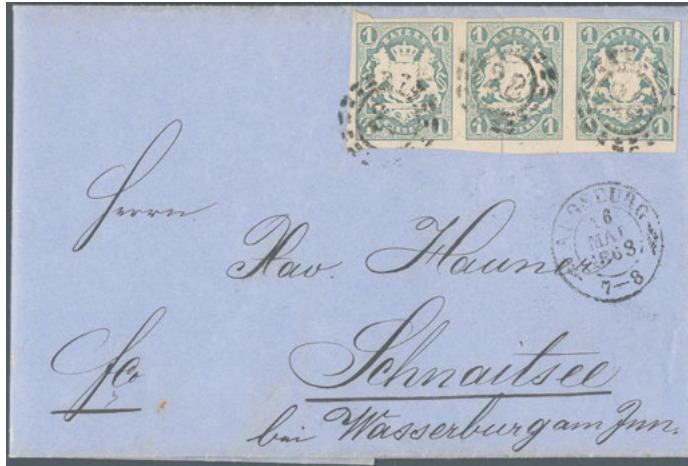 1 BAYERN 1 1 BAYERN 1 1 BAYERN 1
1 KREUZER 1 1 KREUZER 1 1 KREUZER 1
AUGSBURG
16
MAI
1868
7-8
Herrn
Xav. Hauner
fco
Schnaitsee
bei Wasserburg am Inn.